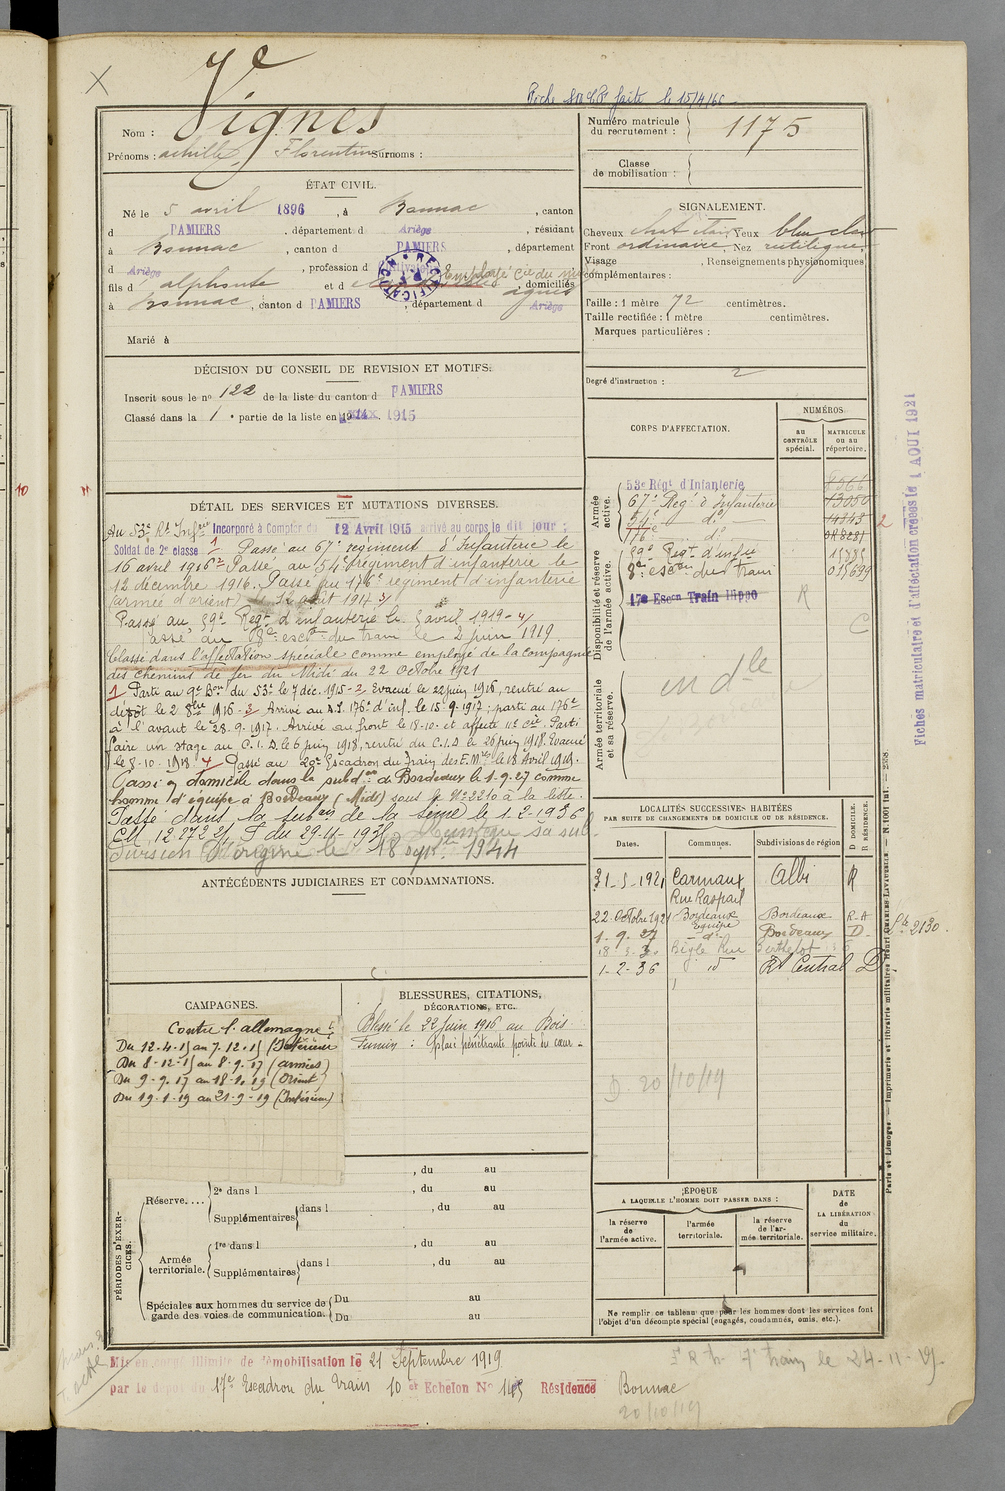 Vignes
Nom :
Prénoms : achille, Florentin Surnoms :
Numéro matricule
du recrutement :
1175
Classe
de mobilisation :
ÉTAT CIVIL.
Né le 5 avril 1896, à Bonnac, canton
d PAMIERS, département d Ariège, résidant
à Bonnac, canton d PAMIERS, département
d Ariège, profession d
RECTIFICATION
fils d alphonse et d agnès, domiciliés
à Bonnac, canton d PAMIERS, département d Ariège
Marié à
SIGNALEMENT.
Cheveux chat clair Yeux bleu clair
Front ordinaire Nez rectiligne
Visage , Renseignements physionomiques
complémentaires :
Taille : 1 mètre 72 centimètres.
Taille rectifiée : 1 mètre centimètres.
Marques particulières :
Degré d'instruction : 2
DÉCISION DU CONSEIL DE REVISION ET MOTIFS.
Inscrit sous le n° 122 de la liste du canton d PAMIERS
Classé dans la 1e partie de la liste en 1915
CORPS D'AFFECTATION.
NUMÉROS
au
contrôle
spécial.
MATRICULE
ou au
répertoire.
Armée
active.
53e Régt d'Infanterie
67e Régt d'Infanterie
54e do
176e do
Disponibilité et réserve
de l'armée active.
59e Regt d'infrie
8e escon du train
17e Escon Train Hippo
R
C
Armée territoriale
et sa réserve.
Fiches matriculaire et d'affectation creées le 1 AOUT 1921
DÉTAIL DES SERVICES ET MUTATIONS DIVERSES.
Au 53e Rt Infrie Incorporé à Compter du 12 Avril 1915 arrivé au corps le dit jour ;
Soldat de 2e classe 1 Passé au 67e régiment d'Infanterie le
16 avril 1916 2 Passé au 54e régiment d'infanterie le
12 décembre 1916. Passé au 176e régiment d'infanterie
(armée d'orient) 12 août 1917 3/
Passé au 59e Régt d'infanterie le 5 avril 1919 4/
Passé au 18e escon du train le 2 juin 1919.
Classé dans l'affectation spéciale comme employé de la compagnie
des chemins de fer du Midi du 22 Octobre 1921
1 Parti au 9e Bon du 53e le 7 déc. 1915 - 2 Evacué le 22 juin 1916, rentré au
dépôt le 2 8bre 1916 - 3 Arrivé au D.I. 176e d'inf. le 15.9.1917 ; parti au 176e
à l'avant le 28.9.1917. Arrivé au front le 18.10 et affecté 11e Cie. Parti
faire un stage au C.I.D. le 6 juin 1918, rentré du C.I.D. le 26 juin 1918. Evacué
le 8-10-1918 4 Passé au 20e Escadron du Train des E.M. le 18 Avril 1919.
Passé domicile dans la subdon de Bordeaux le 1.9.27 comme
homme d'équipe à Bordeaux (Midi) sous le N° 2210 à la liste.
Passé dans la subon de la Seine le 1.2.1936
division d'origine le 18 septbre 1944
LOCALITÉS SUCCESSIVES HABITÉES
PAR SUITE DE CHANGEMENTS DE DOMICILE OU DE RÉSIDENCE.
Dates.
Communes.
Subdivisions de région
D DOMICILE.
R RÉSIDENCE.
31-5-1921 Carmaux Albi R
Rue Raspail
22 Octobre 1921 Bordeaux Bordeaux R-A
équipe
1.9.27 - do - Bordeaux D
Bègle Rue Berthelot
1-2-36 id Rt Central D
ANTÉCÉDENTS JUDICIAIRES ET CONDAMNATIONS.
CAMPAGNES.
Contre l'allemagne
Du 12-4-15 au 7.12.15 (Intérieur)
Du 8-12-15 au 8-9.17 (armées)
Du 9-9.17 au 18-1.19 (Orient)
Du 19-1-19 au 21-9-19 (Intérieur)
BLESSURES, CITATIONS,
DÉCORATIONS, ETC.
Blessé le 22 juin 1916 au Bois
Fumin : plaie pénétrante pointe du cœur
D. 20/10/19
PÉRIODES D'EXERCICES.
Réserve....
2e dans l , du au
Supplémentaires dans l , du au
Armée
territoriale.
1re dans l , du au
Supplémentaires dans l , du au
Spéciales aux hommes du service de
garde des voies de communication.
Du au
Du au
ÉPOQUE
A LAQUELLE L'HOMME DOIT PASSER DANS :
la réserve
de
l'armée active.
l'armée
territoriale.
la réserve
de l'ar-
mée territoriale.
DATE
de
LA LIBÉRATION
du
service militaire.
Ne remplir ce tableau que pour les hommes dont les services font
l'objet d'un décompte spécial (engagés, condamnés, omis, etc.).
Paris et Limoges. — Imprimerie et librairie militaires Henri CHARLES-LAVAUZELLE.
Mis en congé illimité de démobilisation le 21 Septembre 1919
par le dépôt du 17e Escadron du train 10e Echelon N° 145 Résidence Bonnac
20/10/19